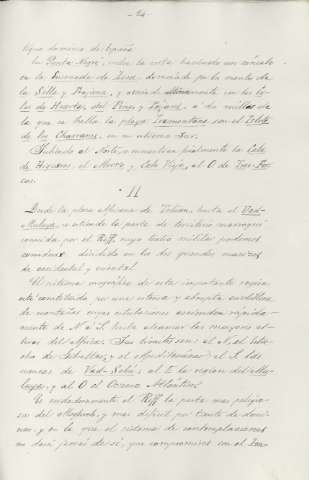 - 24 -
tigua dominio de España.
En Punta Negri, vuelve la costa haciendo un
en la Ensenada de Zera, dominada por los montes de
la Silla y Trajana, y
las de Huertas, del Rey, y Tejera, a dos millas de
la que se halla la playa Tramontana con el Islote
de los Charranes, en su extremo Sur.
Subiendo al Norte, se encuentran finalmente la Cala
de Higueras, el Morro, y Cala Vieja, al O. de Tres Forcas.
II
Desde la plaza Africana de Tetuan, hasta el Uad-
Muluya se extiende la parte de territorio marroquí
conocida por el Riff, cuyo teatro militar podemos
considerar dividido en los dos grandes macizos
de occidental y oriental.
El sistema orográfico de esta importante región
está constituido por una extensa y abrupta cordillera
de montañas cuyas ondulaciones ascienden rápida-
mente de N. a S. hasta alcanzar las mayores al-
turas del África. Sus límites son al N. el Estre-
cho de Gibraltar, y el Mediterráneo; al S. las
cuencas de Uad-Sebú; al E. la región del Mu-
luya, y al O. el Oceano Atlántico.
Es indudablemente el Riff la parte mas peligro-
sa del Moghreb, y mas difícil por tanto de domi-
nar, y en la que el sistema de contemplaciones
no dará jamás de sí, que compromisos con el Im-